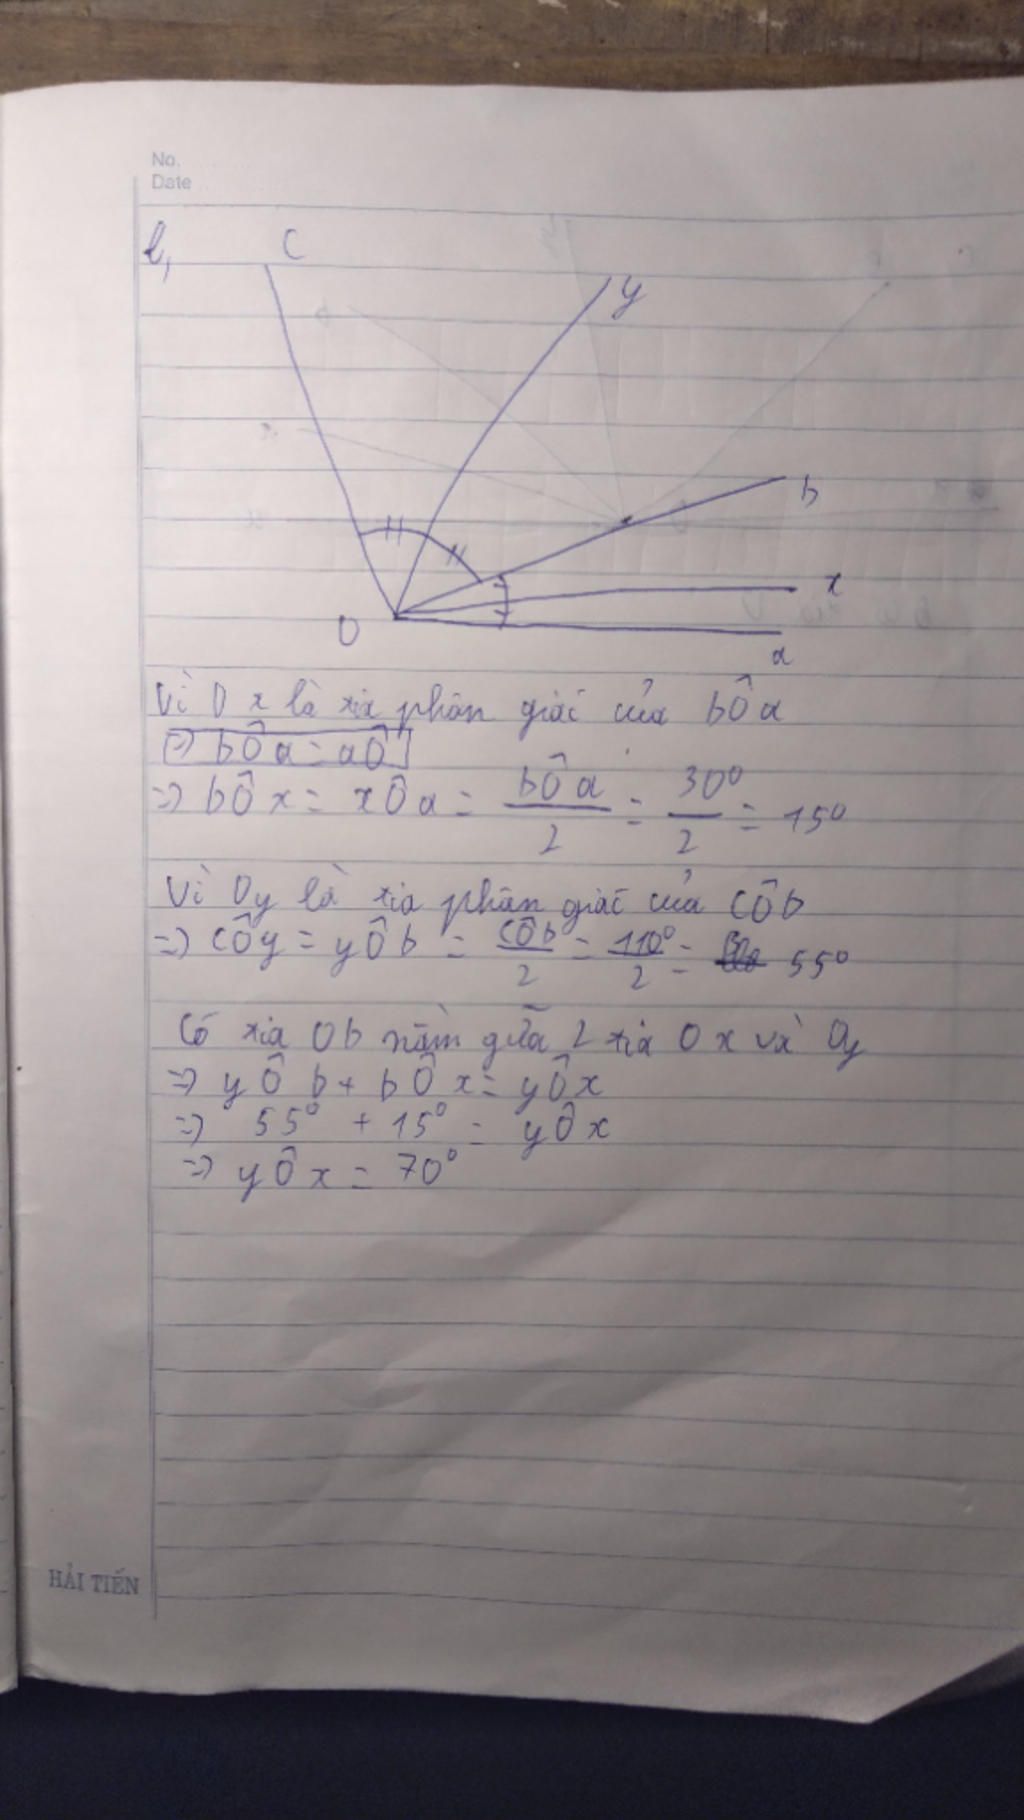 No.
Date
b,
C
y
b
x
O
a
Vì Ox là tia phân giác của bÔa
=> bÔa = aÔ
=> bÔx = xÔa = bÔa/2 = 30°/2 = 15°
Vì Oy là tia phân giác của CÔb
=> CÔy = yÔb = CÔb/2 = 110°/2 = 55°
Có tia Ob nằm giữa 2 tia Ox và Oy
=> yÔb + bÔx = yÔx
=> 55° + 15° = yÔx
=> yÔx = 70°
HẢI TIẾN